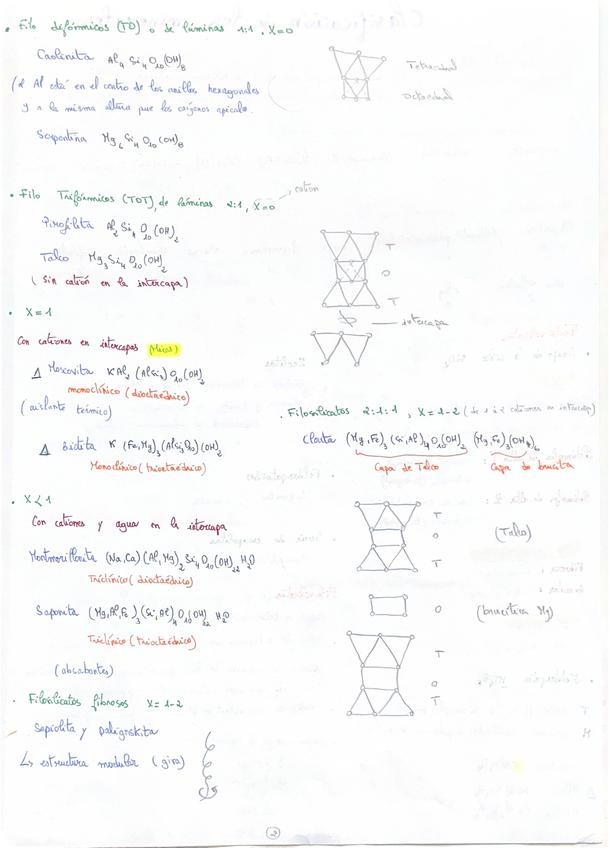 • Filo difórmicos (TO) o de láminas 1:1, X=0
Caolinita Al4 Si4 O10(OH)8
Tetraedral
Octaedral
(2 Al está en el centro de los anillos hexagonales
y a la misma altura que los oxígenos apicales.
Serpentina Mg6 Si4 O10(OH)8
• Filo Trifórmicos (TOT), de láminas 2:1, X=0
cation
Pirofilita Al2 Si4 O10(OH)2
T
Talco Mg3 Si4 O10(OH)2
O
(Sin catión en la intercapa)
T
• X=1
intercapa
Con cationes en intercapas (Micas)
Δ Moscovita KAl2 (AlSi3) O10(OH)2
monoclínico (dioctaédrico)
(aislante térmico)
Δ Biotita K (Fe,Mg)3 (AlSi3O10)(OH)2
Monoclínico (trioctaédrico)
. Filosilicatos 2:1:1, X=1-2 (de 1 a 2 cationes en intercapa)
Clorita (Mg,Fe)3 (Si,Al)4 O10(OH)2 (Mg,Fe)3(OH)6
Capa de Talco
Capa de brucita
• X<1
Con cationes y agua en la intercapa
Montmorillonita (Na,Ca)(Al,Mg)2 Si4 O10(OH)22 H2O
Triclínico (dioctaédrico)
Saponita (Mg,Al,Fe)3 (Si,Al)4 O10(OH)22 H2O
Triclínico (trioctaédrico)
(absorbentes)
T
O
T
(Talco)
O
(brucítica Mg)
T
O
T
• Filosilicatos fibrosos X=1-2
Sepiolita y paligorskita
↳ estructura modular (gira)
2